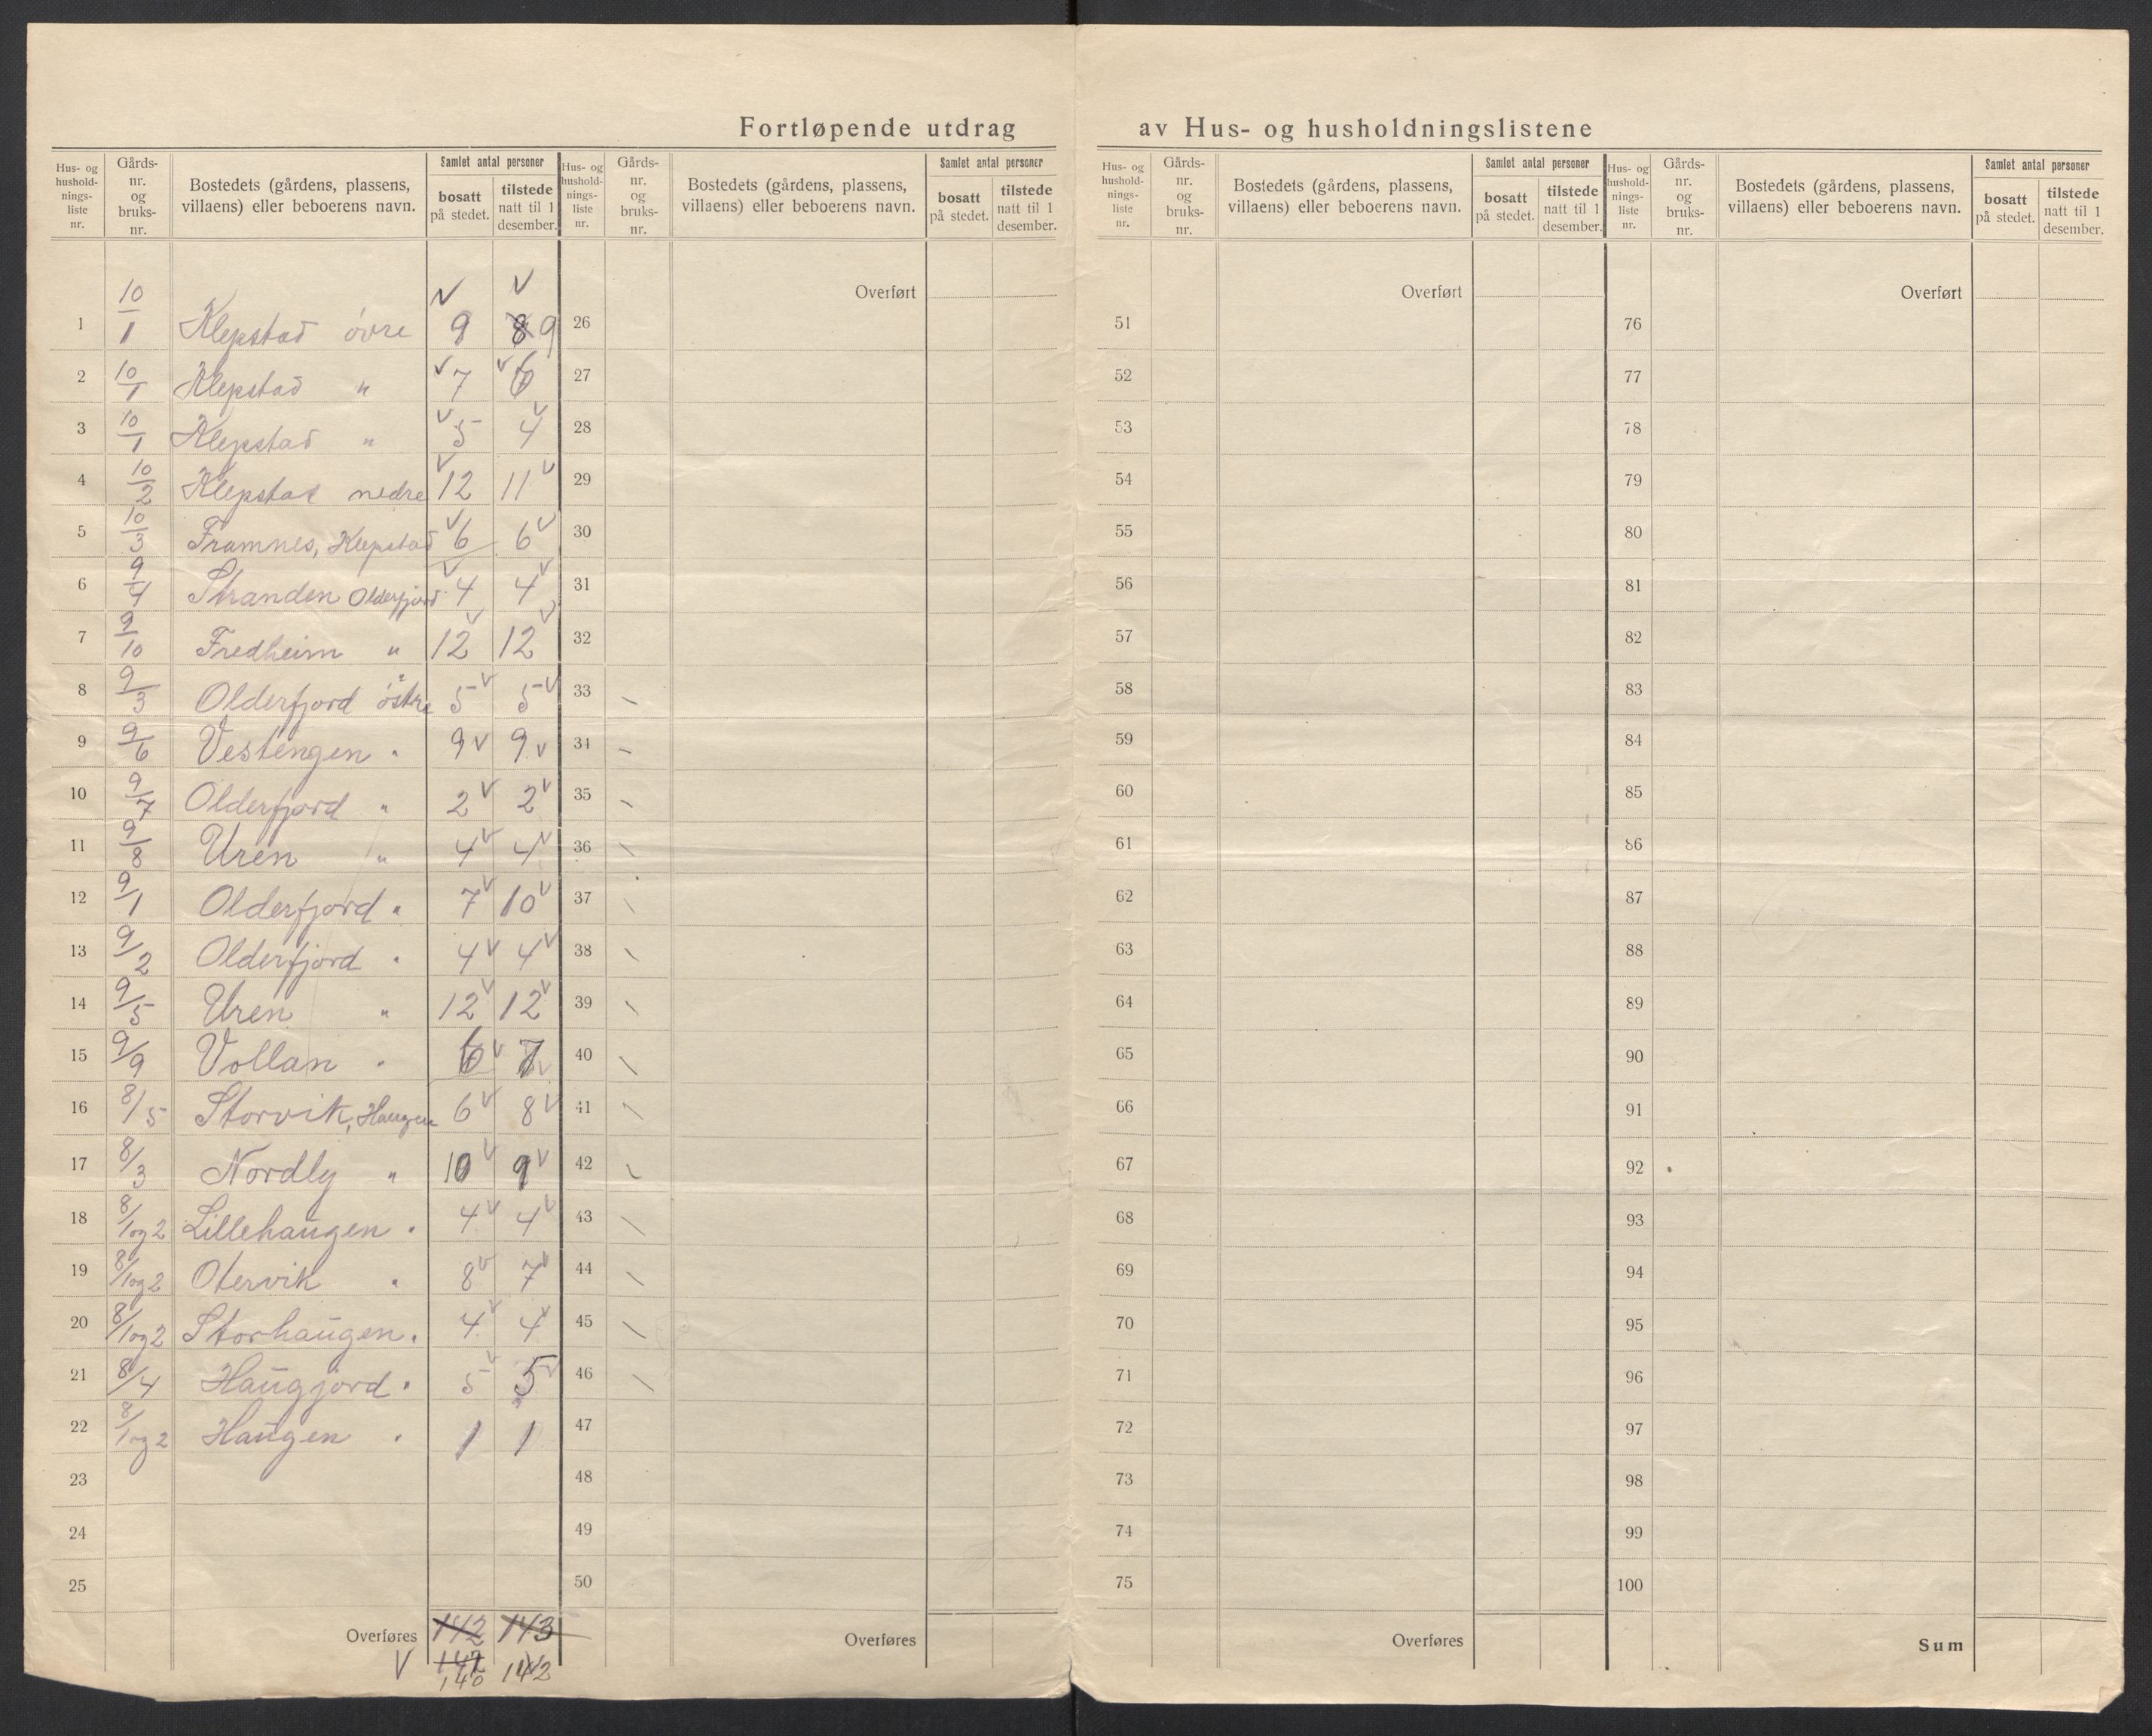 Fortløpende utdrag av Hus- og husholdningslistene
Hus- og hushold- nings- liste nr. | Gårds- nr. og bruks- nr. | Bostedets (gårdens, plassens, villaens) eller beboerens navn. | Samlet antal personer | bosatt på stedet. | tilstede natt til 1 desember.
Hus- og hushold- nings- liste nr. | Gårds- nr. og bruks- nr. | Bostedets (gårdens, plassens, villaens) eller beboerens navn. | Samlet antal personer | bosatt på stedet. | tilstede natt til 1 desember.
Hus- og hushold- nings- liste nr. | Gårds- nr. og bruks- nr. | Bostedets (gårdens, plassens, villaens) eller beboerens navn. | Samlet antal personer | bosatt på stedet. | tilstede natt til 1 desember.
Hus- og hushold- nings- liste nr. | Gårds- nr. og bruks- nr. | Bostedets (gårdens, plassens, villaens) eller beboerens navn. | Samlet antal personer | bosatt på stedet. | tilstede natt til 1 desember.
1 10/1 Klepstad övre 9 8 9
2 10/1 Klepstad " 7 6
3 10/1 Klepstad " 5 4
4 10/2 Klepstad nedre 12 11
5 10/3 Framnes, Klepstad 6 6
6 9/4 Stranden Olderfjord 4 4
7 9/10 Fredheim " 12 12
8 9/3 Olderfjord östre 5 5
9 9/6 Vestengen " 9 9
10 9/7 Olderfjord " 2 2
11 9/8 Uren " 4 4
12 9/1 Olderfjord " 7 10
13 9/2 Olderfjord " 4 4
14 9/5 Uren " 12 12
15 9/9 Vollan " 6 7
16 8/5 Storvik, Haugen 6 8
17 8/3 Nordly " 10 9
18 8/1og2 Lillehaugen " 4 4
19 8/1og2 Otervik " 8 7
20 8/1og2 Storhaugen " 4 4
21 8/4 Haugjord " 5 5
22 8/1og2 Haugen " 1 1
23
24
25
Overføres 142 143
141
140 142
Overført
26
27
28
29
30
31
32
33
34
35
36
37
38
39
40
41
42
43
44
45
46
47
48
49
50
Overføres
Overført
51
52
53
54
55
56
57
58
59
60
61
62
63
64
65
66
67
68
69
70
71
72
73
74
75
Overføres
Overført
76
77
78
79
80
81
82
83
84
85
86
87
88
89
90
91
92
93
94
95
96
97
98
99
100
Sum